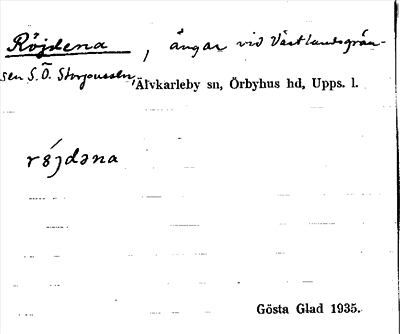 Röjdena, ängar vid Västlandsgrän-
sen S.Ö. Storjoussen,
Älvkarleby sn, Örbyhus hd, Upps. l.
röjdəna
Gösta Glad 1935.